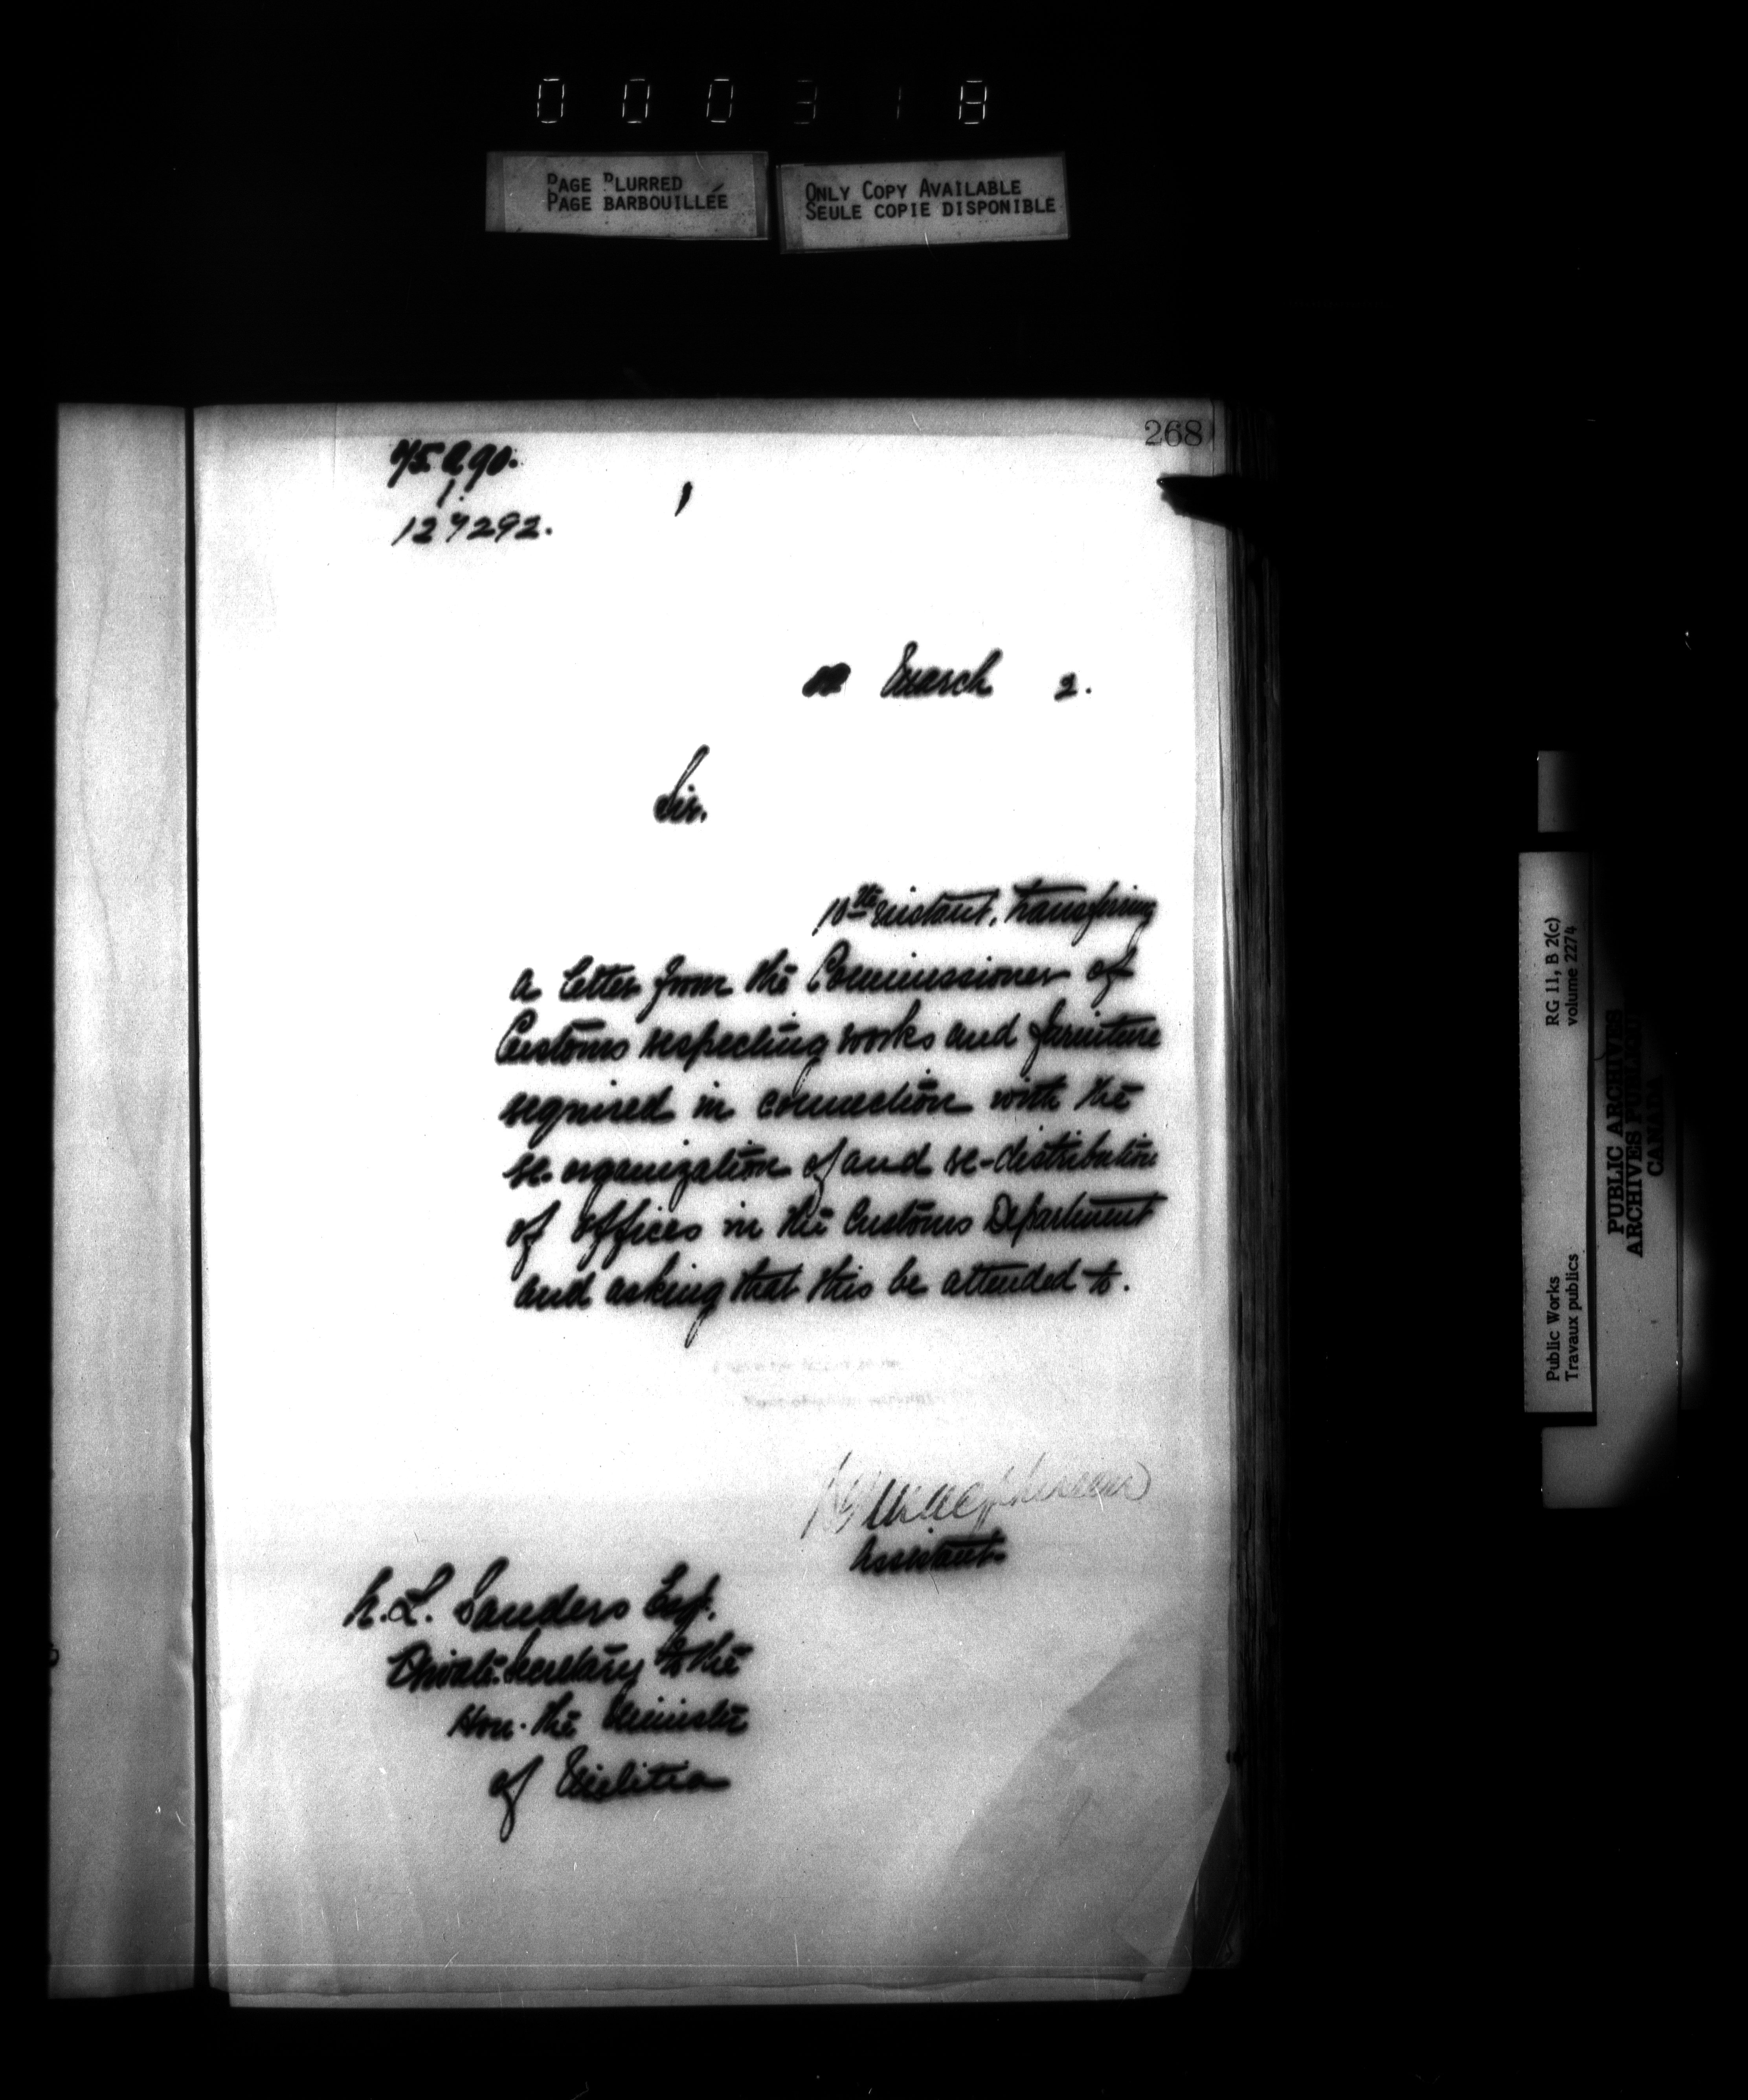 000318
PAGE BLURRED
PAGE BARBOUILLÉE
ONLY COPY AVAILABLE
SEULE COPIE DISPONIBLE
268
1.
127292.
March 2.
Sir,
10th instant, transferring
a letter from the Commissioner of
Customs respecting works and furniture
required in connection with the
re-organization of and re-distribution
of offices in the Customs Department
and asking that this be attended to.
Assistant
L. Sanders Esq.
Private Secretary to the
Hon. the Minister
of Militia
RG 11, B 2(c)
volume 2274
Public Works
Travaux publics
PUBLIC ARCHIVES
ARCHIVES PUBLIQUES
CANADA